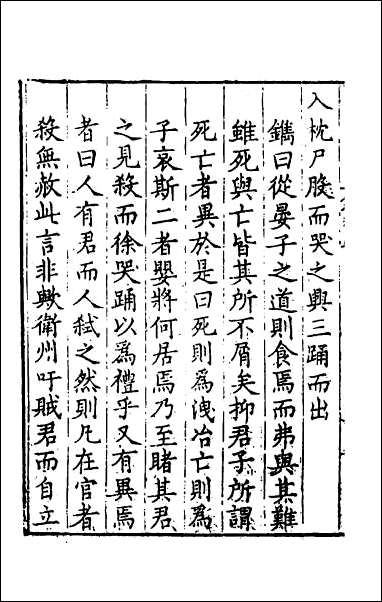 入枕尸股而哭之興三踊而出
鐫曰從晏子之道則食焉而弗與其難
雖死與亡皆其所不屑矣抑君子所謂
死亡者異於是曰死則為洩冶亡則為
子哀斯二者嬰將何居焉乃至睹其君
之見殺而徐哭踊以為禮乎又有異焉
者曰人有君而人弑之然則凡在官者
殺無赦此言非歟衛州吁賊君而自立